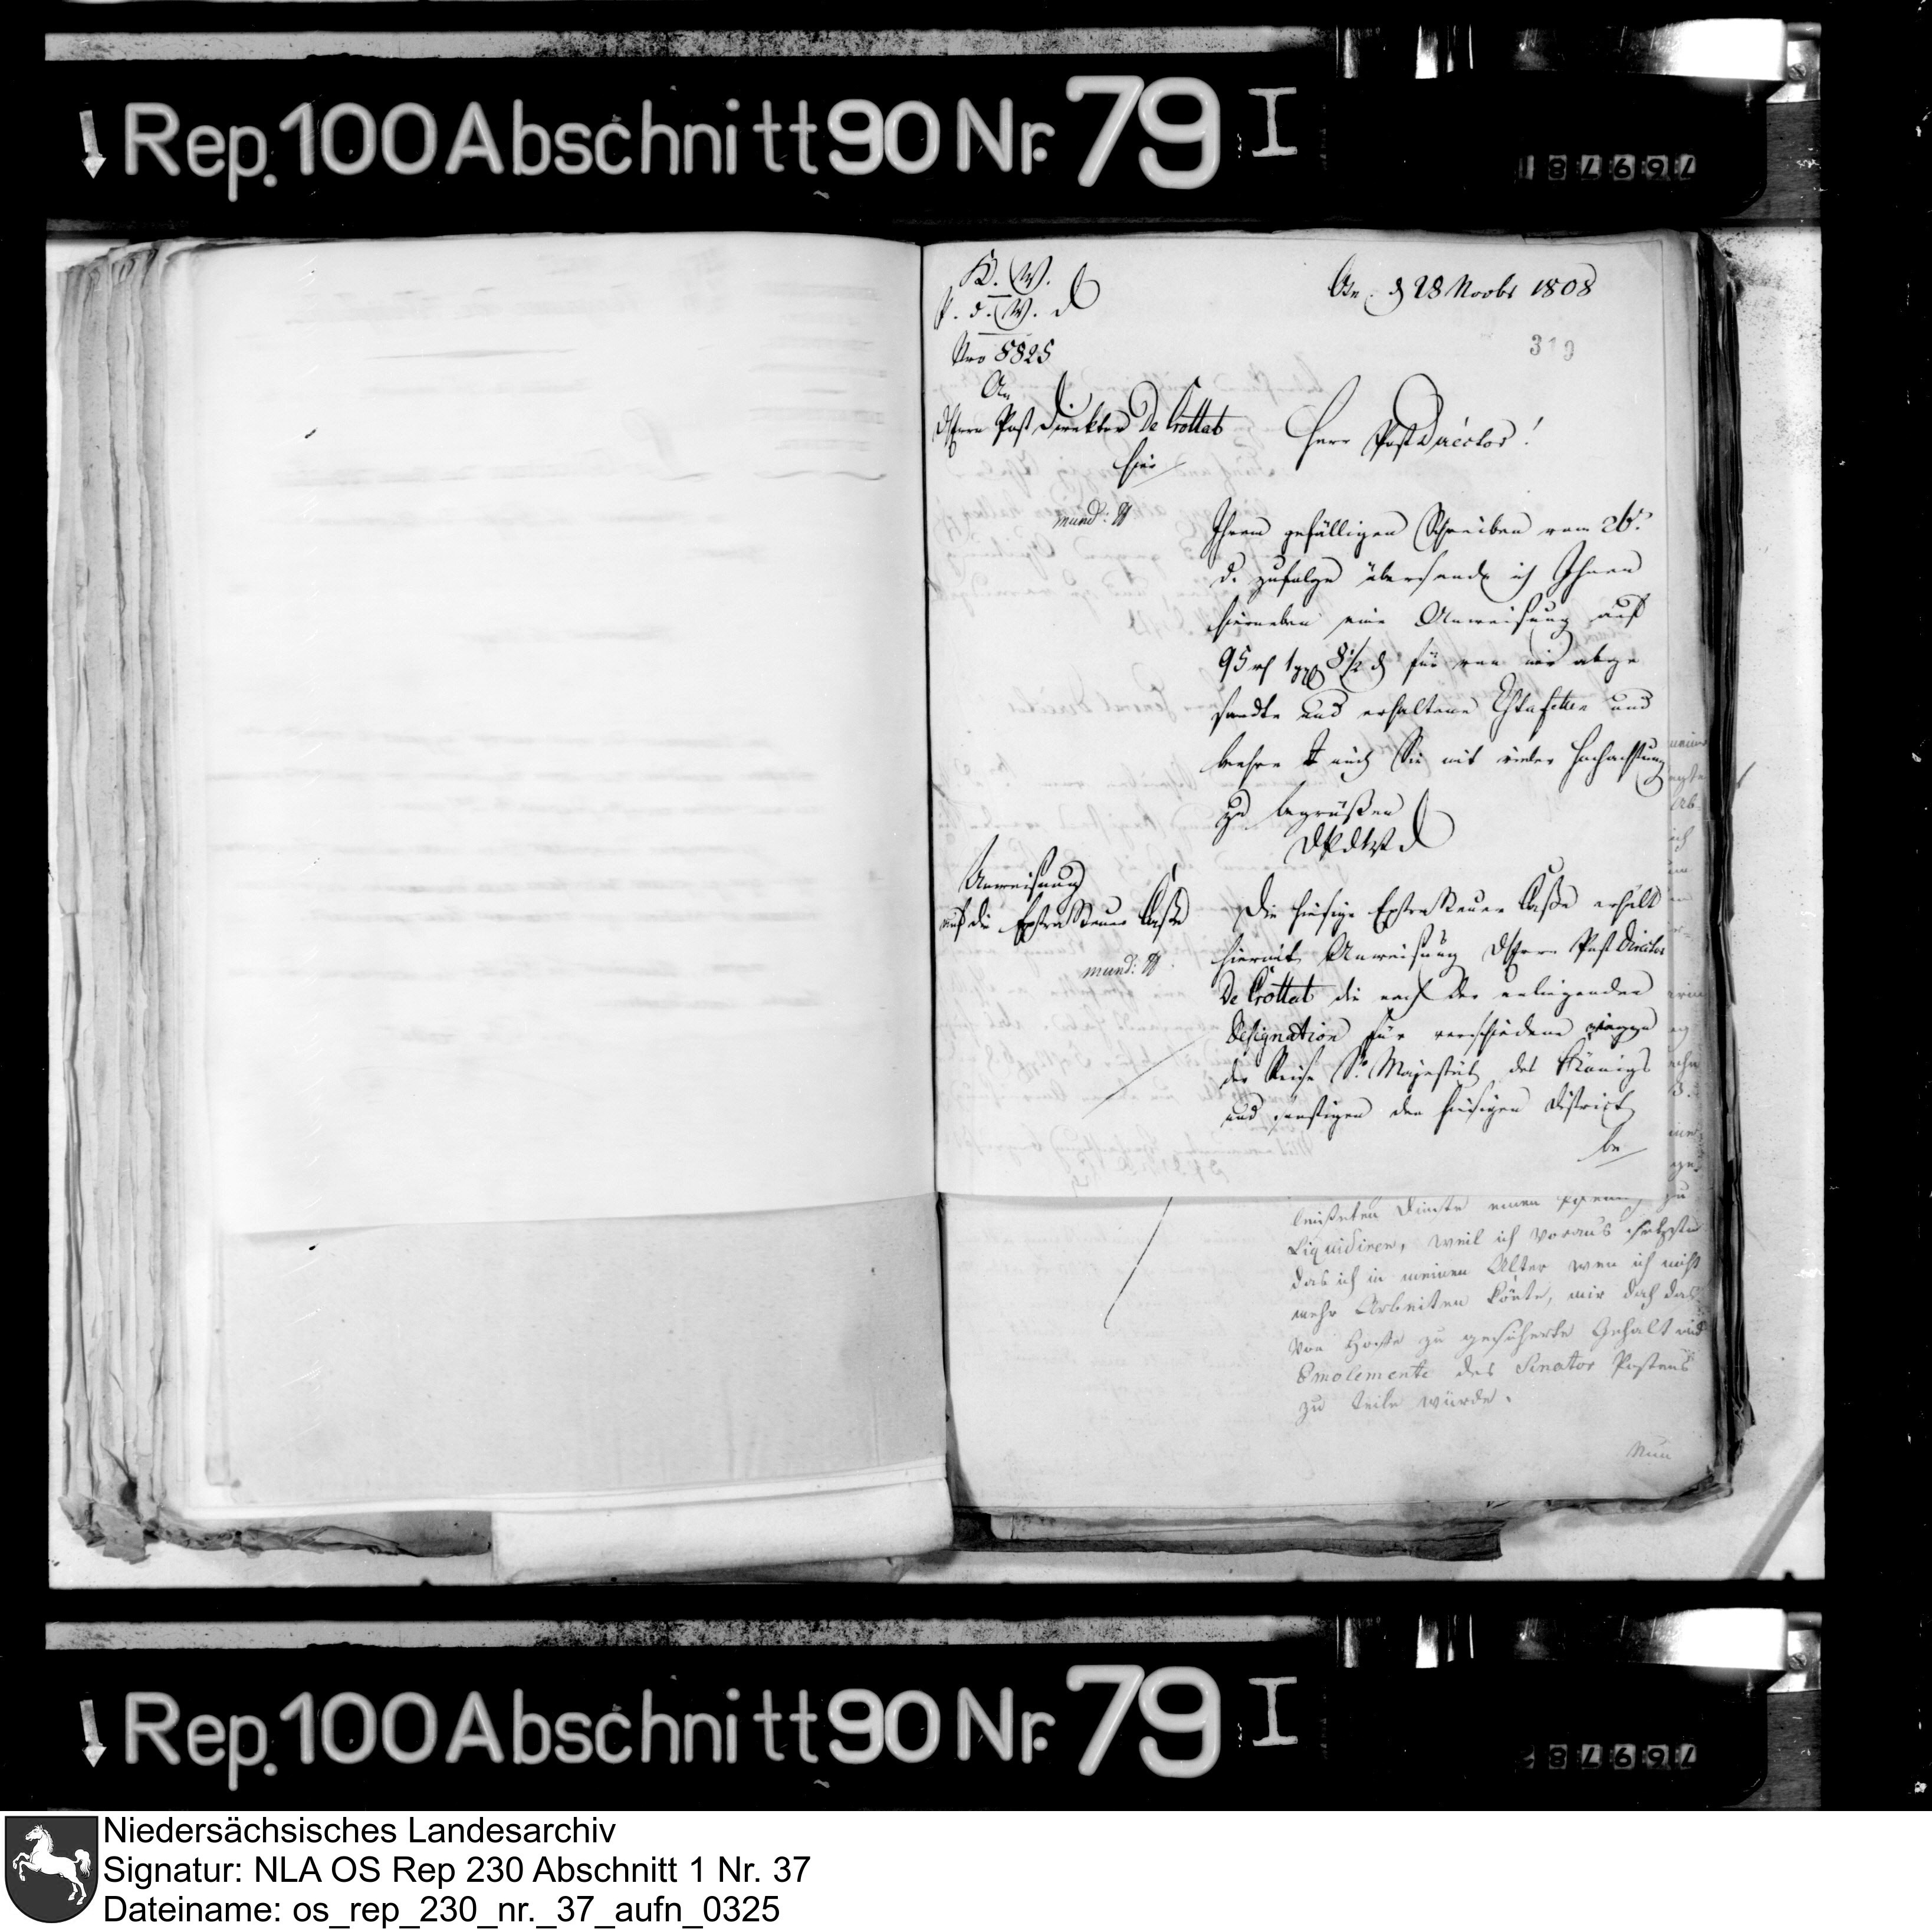 Rep. 100 Abschnitt 90 Nr. 79 I
K. W.
p. o. W. d
Nro 5825
An
d Herrn Post Direktor De Crottat
hier
mund:
Osn. d 28 Novbr 1808
319
Herr Post Director!
Ihrem gefälligen Schreiben vom 26t
d. zufolge übersende ich Ihnen
hierneben eine Anweisung auf
95 rt 1 ggl 8 1/2 d für von mir abge
sandte und erhaltene Estafetten und
beehre mich Sie mit vieler Hochachtung
zu begrüßen
Anweisung
auf die Extra Steuer Casse
mund:
Die hiesige Extra Steuer Casse erhält
hiermit Anweisung d Herrn Post Director
De Crottat die nach der anliegenden
Designation für verschiedene wegen
der Reise Sr. Majestät des Königs
und sonstigen den hiesigen District
be
leisteten Dienste einen zu
Liquidiren, weil ich voraus
das ich in meinen Alter wen ich nicht
mehr Arbeiten könte, mir doch das
von zu gesicherte Gehalt und
Emolemente des Senator Postens
zu teile würde.
Nun
Rep. 100 Abschnitt 90 Nr. 79 I
Niedersächsisches Landesarchiv
Signatur: NLA OS Rep 230 Abschnitt 1 Nr. 37
Dateiname: os_rep_230_nr._37_aufn_0325